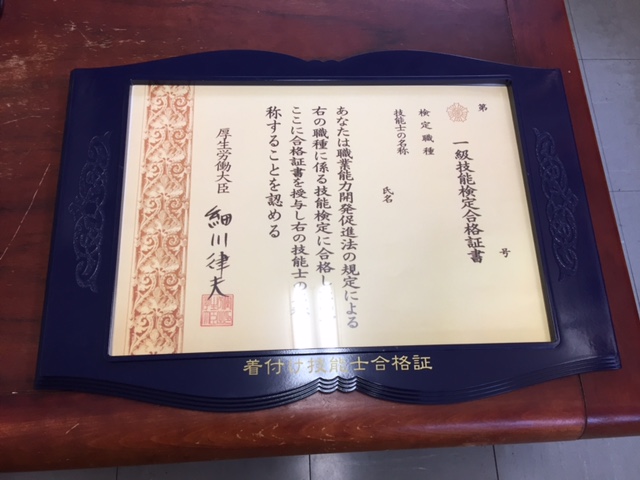 第 号
一級技能検定合格証書
検定職種
技能士の名称
氏名
あなたは職業能力開発促進法の規定による
右の職種に係る技能検定に合格し
ここに合格証書を授与し右の技能士の
称することを認める
厚生労働大臣 細川律夫
着付け技能士合格証